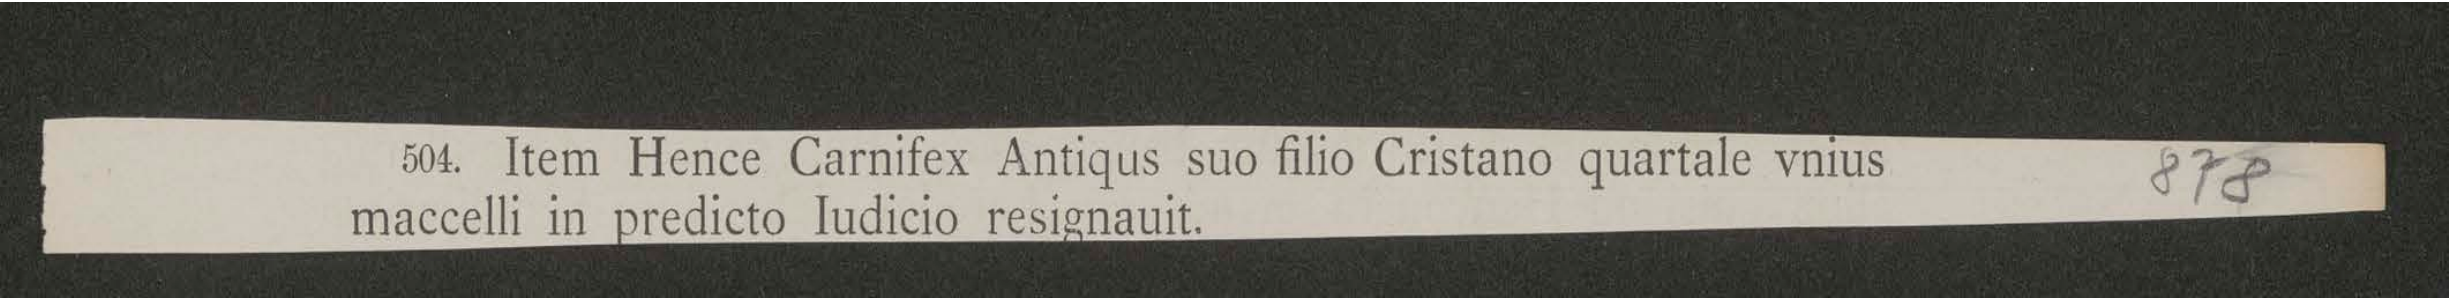 504. Item Hence Carnifex Antiqus suo filio Cristano quartale vnius 878
maccelli in predicto Iudicio resignauit.